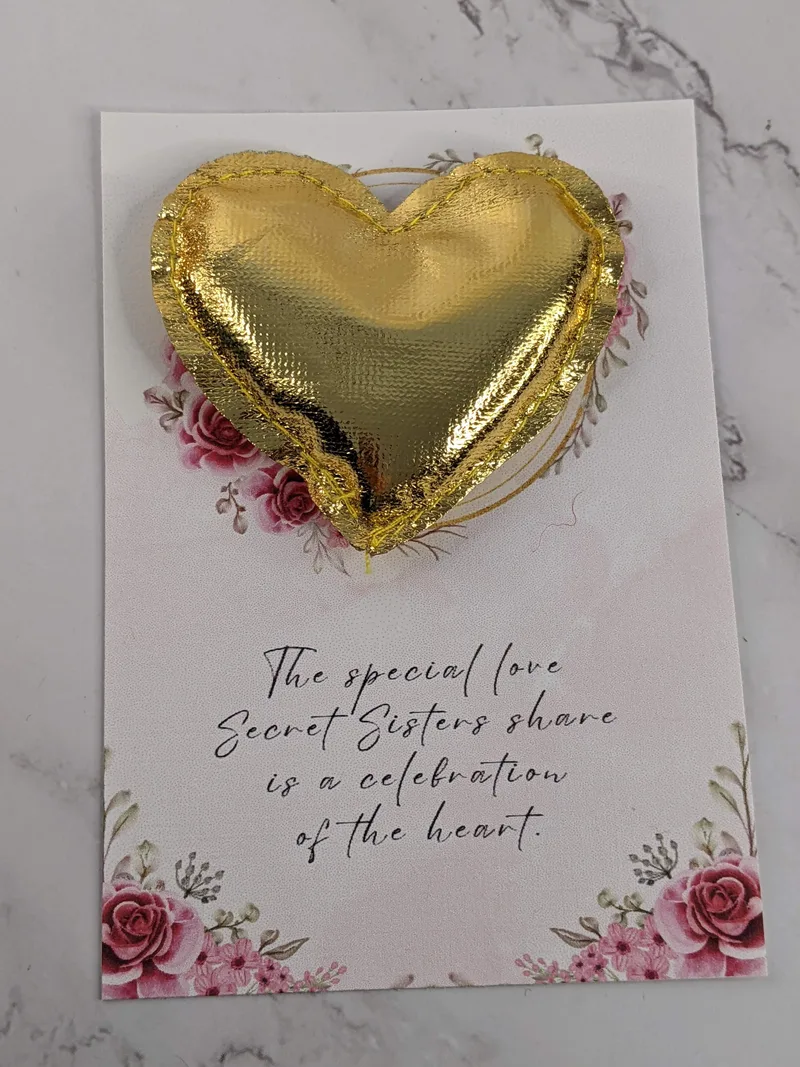 The special love
Secret Sisters share
is a celebration
of the heart.